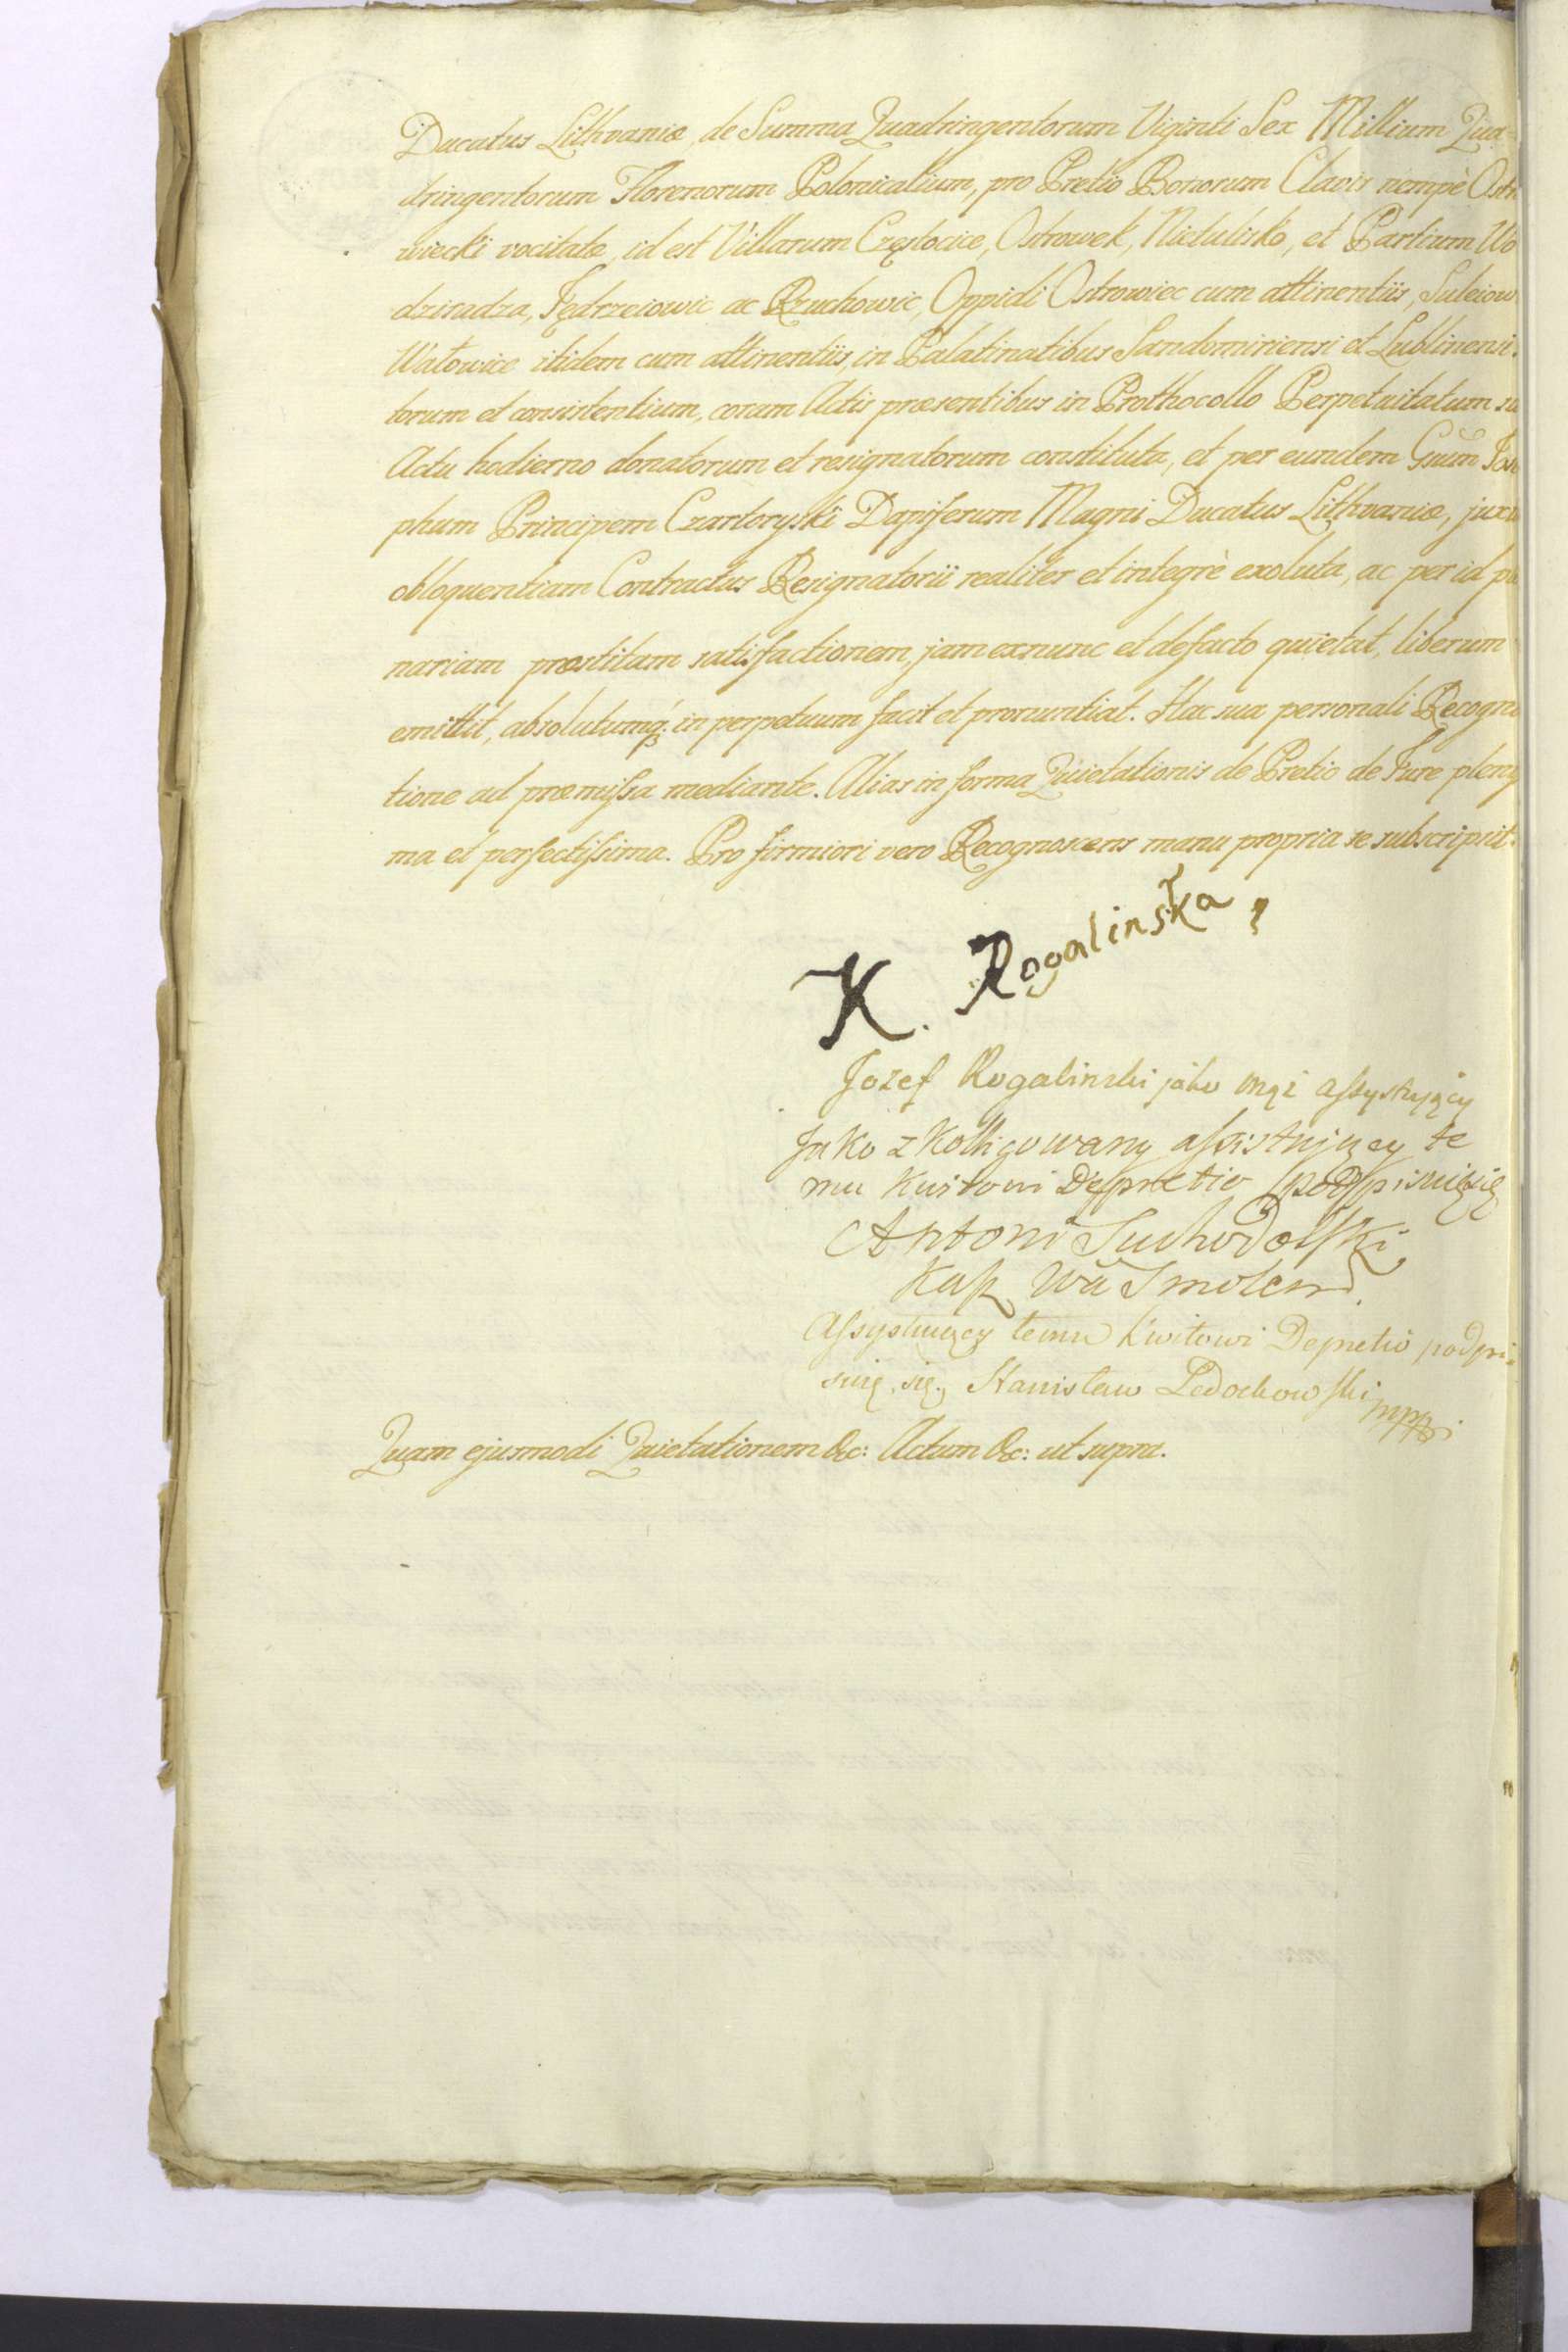 Ducatus Lithvaniæ, de Summa Quadringentorum Viginti Sex Millium Qua-
dringentorum Florenorum Polonicalium, pro Pretio Bonorum Clavis nempè Ostr
wiecki vocitatæ, id est Villarum Częstocice, Ostrowek, Nietulisko, et Partium Wo
dziradza, Jędrzeiowic ac Rzuchowic, Oppidi Ostrowiec cum attinentiis, Suleiow
Wałowice itidem cum attinentiis, in Palatinatibus Sandomiriensi et Lublinensi
torum et consistentium, coram Actis præsentibus in Prothocollo Perpetuitatum su
Actu hodierno donatorum et resignatorum constituta, et per eundem Gnûm Jos
phum Principem Czartoryski Dapiferum Magni Ducatus Lithvaniæ, juxta
obloquentiam Contractus Resignatorii realiter et integrè exoluta, ac per id ple
nariam præstitam satisfactionem, jam exnunc et defacto quietat, liberum
emittit, absolutumq; in perpetuum facit et pronuntiat. Hac sua personali Recogni
tione ad præmissa mediante. Alias in forma Quietationis de Pretio de Jure pleny
ma et perfectissima. Pro firmiori vero Recognoscens manu propria se subscripsit.
K. Rogalinska,
Jozef Rogalinski jako mąż assystujący
Jako z Kolligowany assistujący te
mu Kwitowi Depretio podpisuię się
Antoni Suchodolski
Kasz Wa Smolen.
Assystuiący temu Kwitowi Depretio podpi-
suię się. Stanisław Ledochowski mppr
Quam ejusmodi Quietationem &c: Actum &c: ut supra.